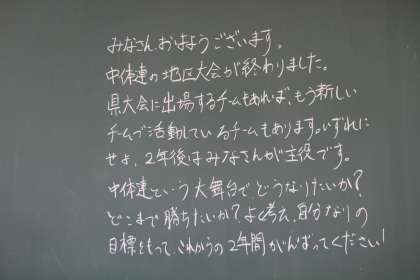 みなさん、おはようございます。
中体連の地区大会が終わりました。
県大会に出場するチームもあれば、もう新しい
チームで活動しているチームもあります。いずれに
せよ、2年後はみなさんが主役です。
中体連という大舞台でどうなりたいか?
どこまで勝ちたいか?よく考え、自分なりの
目標をもって、これからの2年間がんばってください!